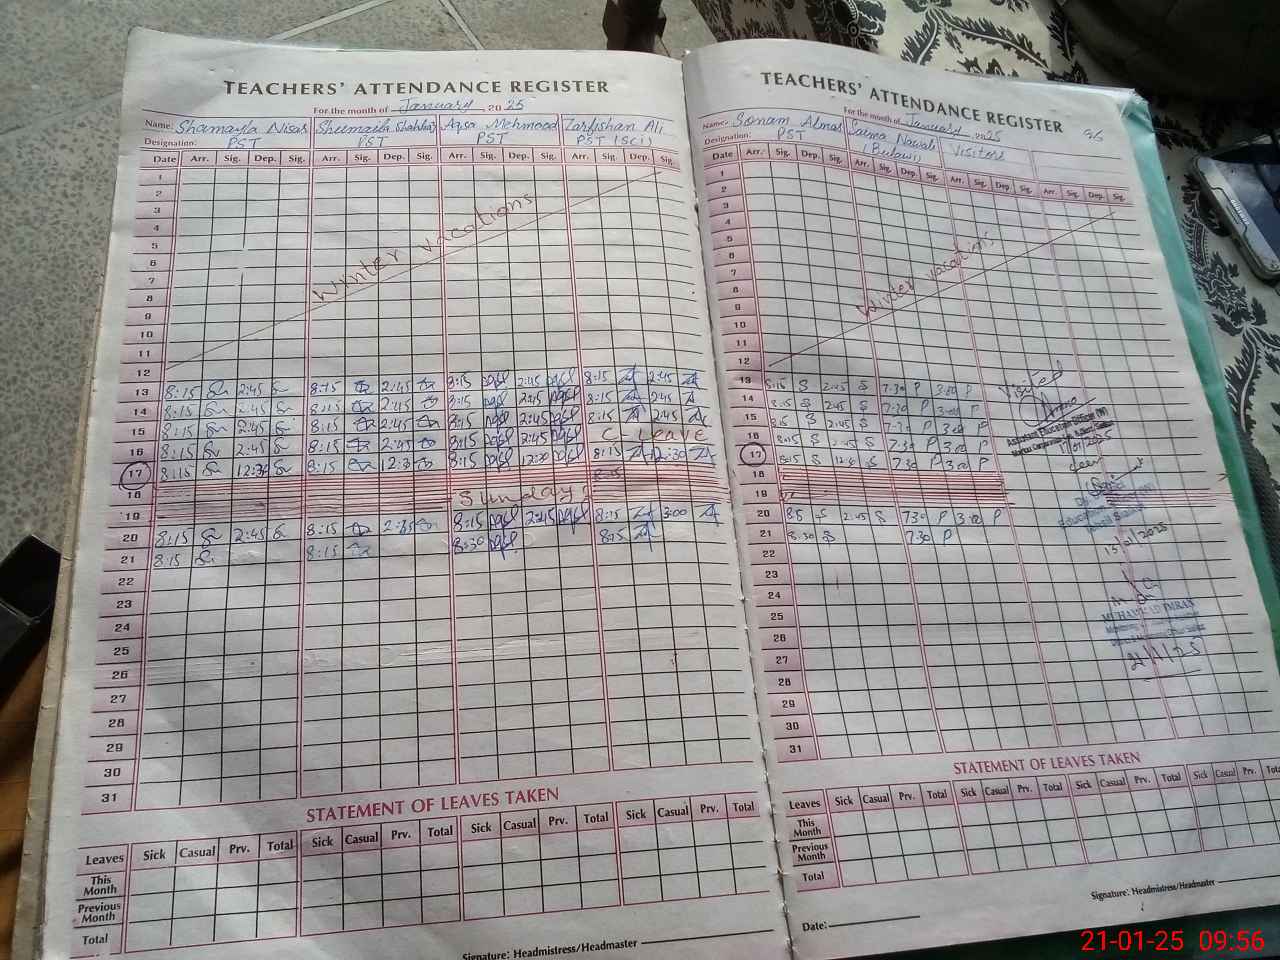 TEACHERS' ATTENDANCE REGISTER
For the month of January, 2025
Name: Shamayla Nisar Shumaila Shahbaz Aqsa Mehmood Zarfishan Ali
Designation: PST PST PST PST (Sci)
Date Arr. Sig. Dep. Sig. Arr. Sig. Dep. Sig. Arr. Sig. Dep. Sig. Arr. Sig. Dep. Sig.
1
2
3
4
5
6
7
8
9
10
11
12
Winter vacations
13 8:15 2:45 8:15 2:45 8:15 2:45 8:15 2:45
14 8:15 2:45 8:15 2:45 8:15 2:45 8:15 2:45
15 8:15 2:45 8:15 2:45 8:15 2:45 8:15 2:45
16 8:15 2:45 8:15 2:45 8:15 2:45 C. Leave
17 8:15 12:30 8:15 12:30 8:15 12:30 8:15 12:30
18
19 Sunday
20 8:15 2:45 8:15 2:45 8:15 2:45 8:15 3:00
21 8:15 8:15 8:30 8:15
22
23
24
25
26
27
28
29
30
31
STATEMENT OF LEAVES TAKEN
Leaves Sick Casual Prv. Total Sick Casual Prv. Total Sick Casual Prv. Total Sick Casual Prv. Total
This Month
Previous Month
Total
Signature: Headmistress/Headmaster
TEACHERS' ATTENDANCE REGISTER
96
For the month of January 2025
Name: Sonam Almas Saima Nawab Visitors
Designation: PST
Date Arr. Sig. Dep. Sig. Arr. Sig. Dep. Sig. Arr. Sig. Dep. Sig. Arr. Sig. Dep. Sig.
1
2
3
4
5
6
7
8
9
10
11
12
Winter vacations
13 8:15 S 2:45 S 7:30 P 3:00 P
14 8:15 S 2:45 S 7:30 P 3:00 P
15 8:15 S 2:45 S 7:30 P 3:00 P
16 8:15 S 2:45 S 7:30 P 3:00 P
17 8:15 S 12:30 S 7:30 P 3:00 P
18
19
20 8:15 S 2:45 S 7:30 P 3:00 P
21 8:30 S 7:30 P
22
23
24
25
26
27
28
29
30
31
Visited
Assistant Education Officer
Seen
MUHAMMAD IMRAN
21/1/25
STATEMENT OF LEAVES TAKEN
Leaves Sick Casual Prv. Total Sick Casual Prv. Total Sick Casual Prv. Total Sick Casual Prv. Total
This Month
Previous Month
Total
Signature: Headmistress/Headmaster
Date:
21-01-25 09:56